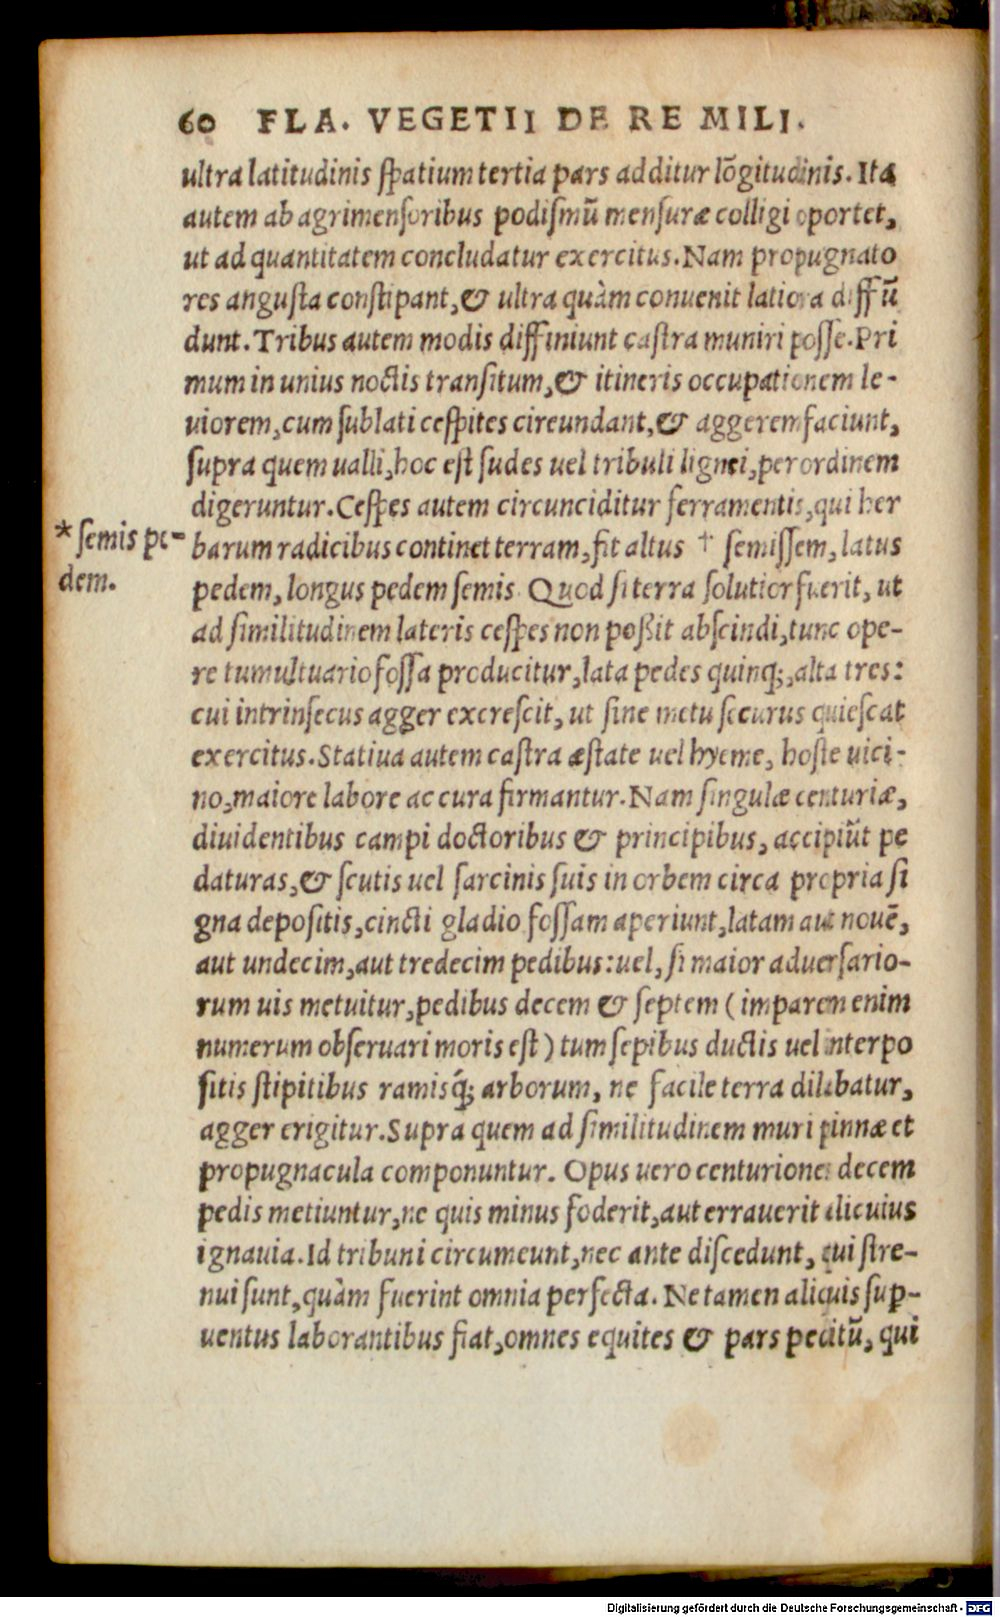 60 FLA. VEGETII DE RE MILI.
ultra latitudinis ſpatium tertia pars additur lõgitudinis. Ita
autem ab agrimenſoribus podiſmũ menſuræ colligi oportet,
ut ad quantitatem concludatur exercitus. Nam propugnato
res anguſta conſtipant, & ultra quàm conuenit latiora diffũ
dunt. Tribus autem modis diffiniunt caſtra muniri poſſe. Pri
mum in unius noctis tranſitum, & itineris occupationem le-
uiorem, cum ſublati ceſpites circundant, & aggerem faciunt,
ſupra quem ualli, hoc eſt ſudes uel tribuli lignei, per ordinem
digeruntur. Ceſpes autem circunciditur ferramentis, qui her
* ſemis pe-
dem.
barum radicibus continet terram, fit altus † ſemiſſem, latus
pedem, longus pedem ſemis. Quod ſi terra ſolutior fuerit, ut
ad ſimilitudinem lateris ceſpes non poßit abſcindi, tunc ope-
re tumultuario foſſa producitur, lata pedes quinq;, alta tres:
cui intrinſecus agger excreſcit, ut ſine metu ſecurus quieſcat
exercitus. Statiua autem caſtra æſtate uel hyeme, hoſte uici-
no, maiore labore ac cura firmantur. Nam ſingulæ centuriæ,
diuidentibus campi doctoribus & principibus, accipiũt pe
daturas, & ſcutis uel ſarcinis ſuis in orbem circa propria ſi
gna depoſitis, cincti gladio foſſam aperiunt, latam aut nouẽ,
aut undecim, aut tredecim pedibus: uel, ſi maior aduerſario-
rum uis metuitur, pedibus decem & ſeptem ( imparem enim
numerum obſeruari moris eſt ) tum ſepibus ductis uel interpo
ſitis ſtipitibus ramisq́; arborum, ne facile terra dilabatur,
agger erigitur. Supra quem ad ſimilitudinem muri pinnæ et
propugnacula componuntur. Opus uero centuriones decem
pedis metiuntur, ne quis minus foderit, aut errauerit alicuius
ignauia. Id tribuni circumeunt, nec ante diſcedunt, qui ſtre-
nui ſunt, quàm fuerint omnia perfecta. Ne tamen aliquis ſup-
uentus laborantibus fiat, omnes equites & pars peditũ, qui
Digitalisierung gefördert durch die Deutsche Forschungsgemeinschaft - DFG